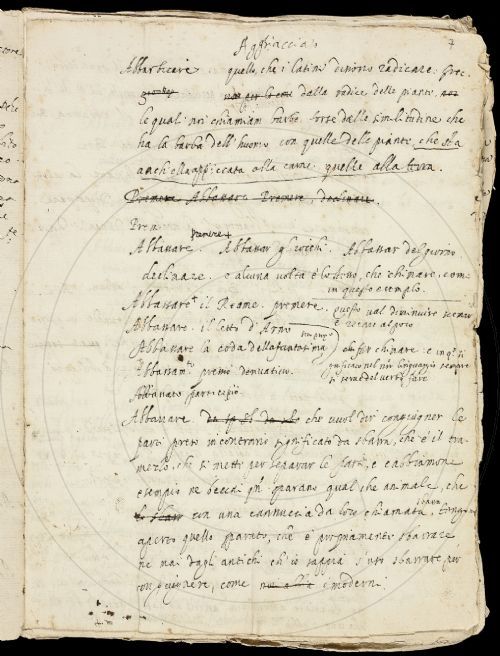 Agghiacciato 7
Abbarbicare quello, che i latini dicono radicare:
dalla radice delle piante,
le quali noi chiamiam barbe. forse dalla similitudine che
ha la barba dell'huomo con quelle delle piante, che sta
anch'ella appiccata alla carne: quelle alla terra.
Premere Abbassare Premere, declinare.
Prem
premere
Abbassare. Abbassar gl'occhi. Abbassar del giorno
declinare. e alcuna volta è lo stesso, che chinare, come
in questo esemplo.
Abbassare il Reame. premere. questo val diminuire scemare
e recare al poco
Abbassare. il letto d'Arno
Abbassare la coda della fantasima per chinare e in
significato nel nostro linguaggio sempre
Abbassamto primo derivativo. si serve del verbo fare
Abbassato participio
Abbassare che vuol dir congiugner le
parti preso in contrario significato da sbarra, che è il tra
mezzo, che si mette per separar le parti, e abbiamone
esempio ne beccai qn sparano qual che animale, che
con una cannuccia da loro chiamata
aperto quello sparato, che è propriamente sbarrare
ne mai dagli antichi ch'io sappia s'usò sbarrare per
congiugnere, come i moderni.